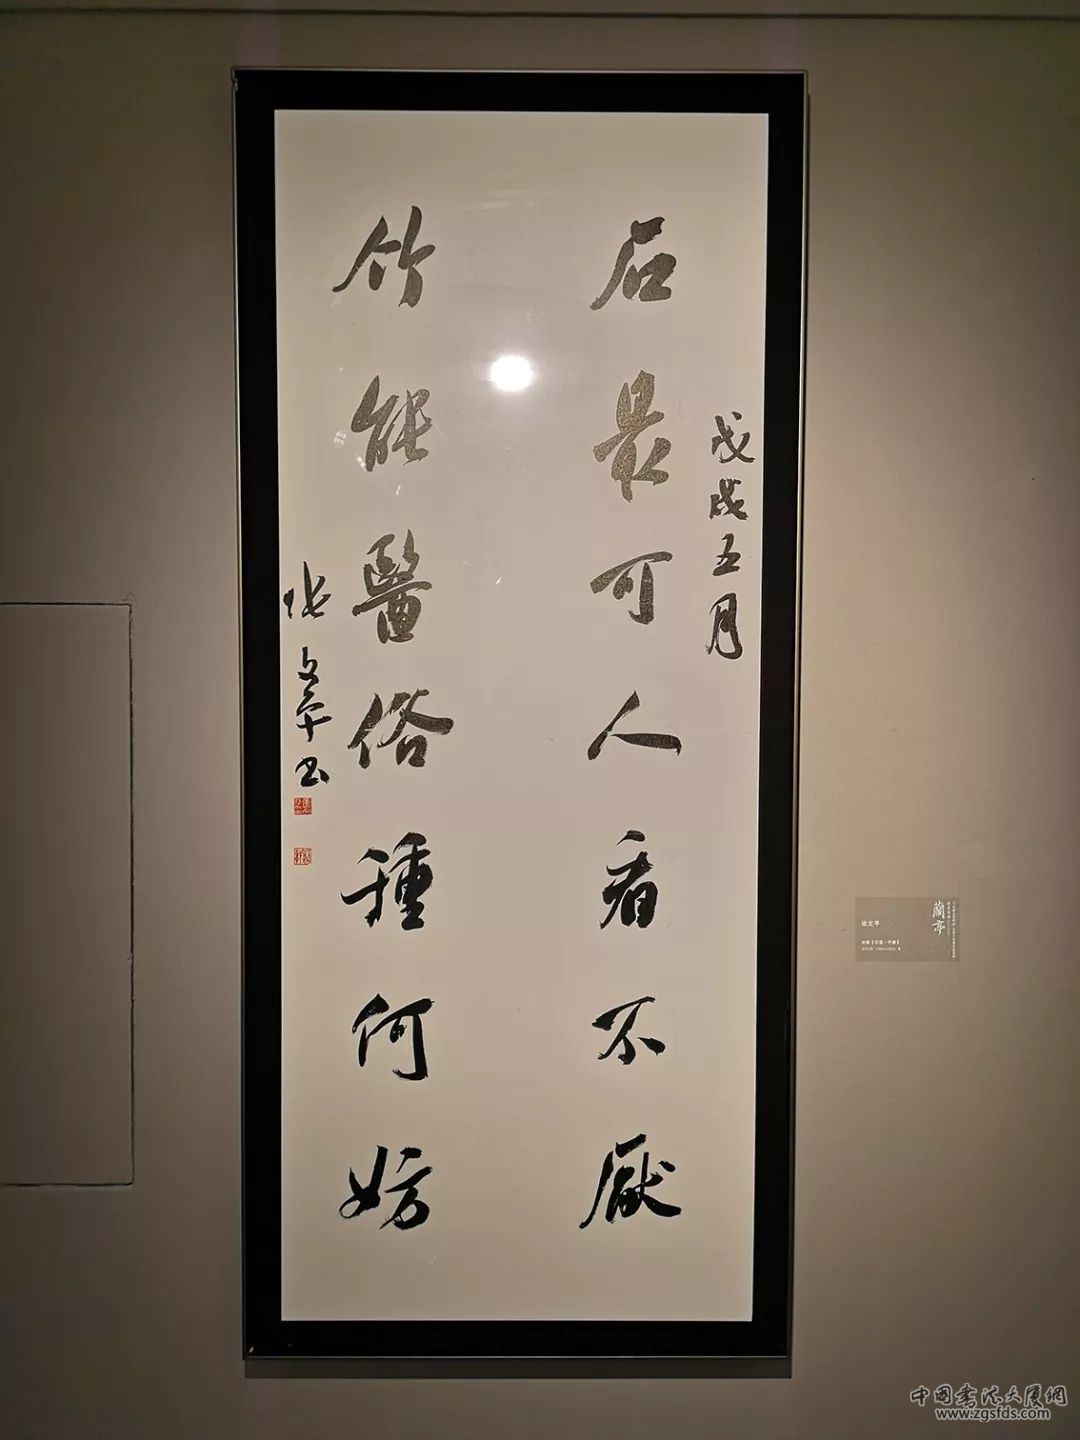 戊戌五月
石最可人看不厭
竹能醫俗種何妨
张文平书
蘭亭
张文平
中国书法大厦網
www.zgsfds.com